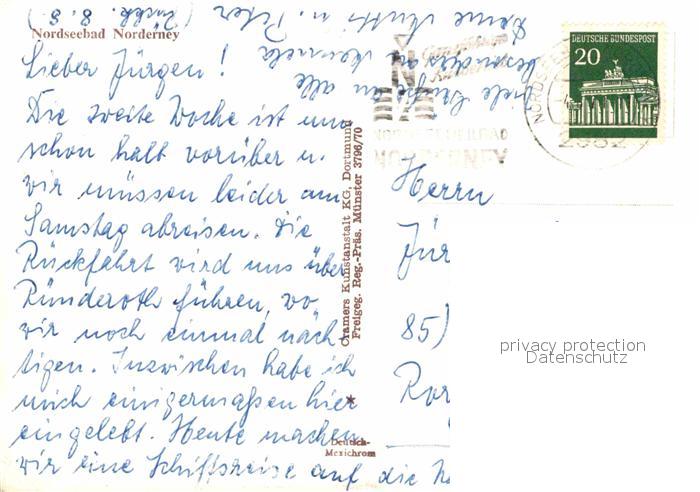 Nordseebad Norderney
Lieber Jürgen!
Die zweite Woche ist nun
schon halb vorüber u.
wir müssen leider am
Samstag abreisen. Die
Rückfahrt wird uns über
Ründeroth führen, wo
wir noch einmal näch-
tigen. Inzwischen habe ich
mich einigermaßen hier
eingelebt. Heute machen
wir eine Schiffsreise auf die
Viele Grüße an alle
besonders an
Deine Mutti u. Peter
8. 8.
Cramers Kunstanstalt KG, Dortmund
Freigeg. Reg.-Präs. Münster 3796/70
Deutsch-
Mexichrom
DEUTSCHE BUNDESPOST
20
NORDERNEY
2982
Herrn
Jür
85)
Ror
privacy protection
Datenschutz